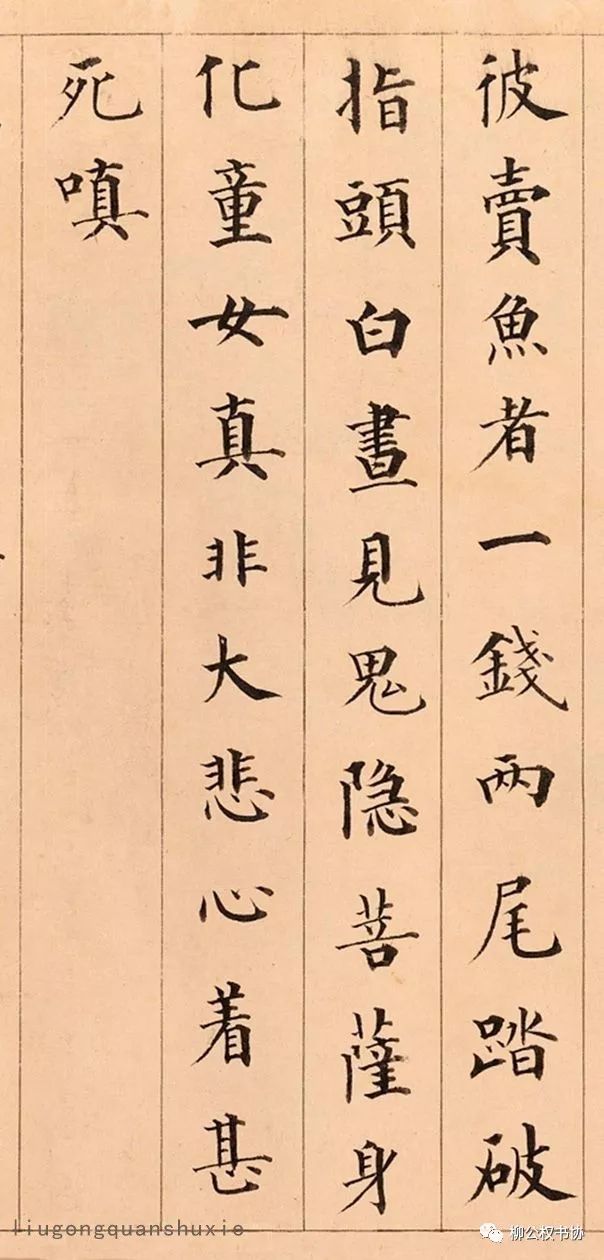 彼賣魚者一錢两尾踏破
指頭白晝見鬼隐菩薩身
化童女真非大悲心着甚
死嗔
liugongquanshuxie
柳公权书协